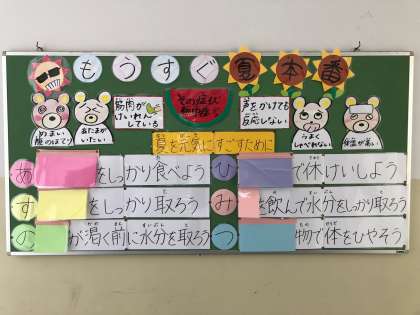 もうすぐ夏本番
めまい
顔のほてり
あたまが
いたい
筋肉が
けいれん
している
その症状
声をかけても
反応しない
うまく
しゃべれない
体温が高い
夏を元気にすごすために
あ をしっかり食べよう
す をしっかり取ろう
の が渇く前に水分を取ろう
ひ で休けいしよう
み を飲んで水分をしっかり取ろう
つ 物で体をひやそう